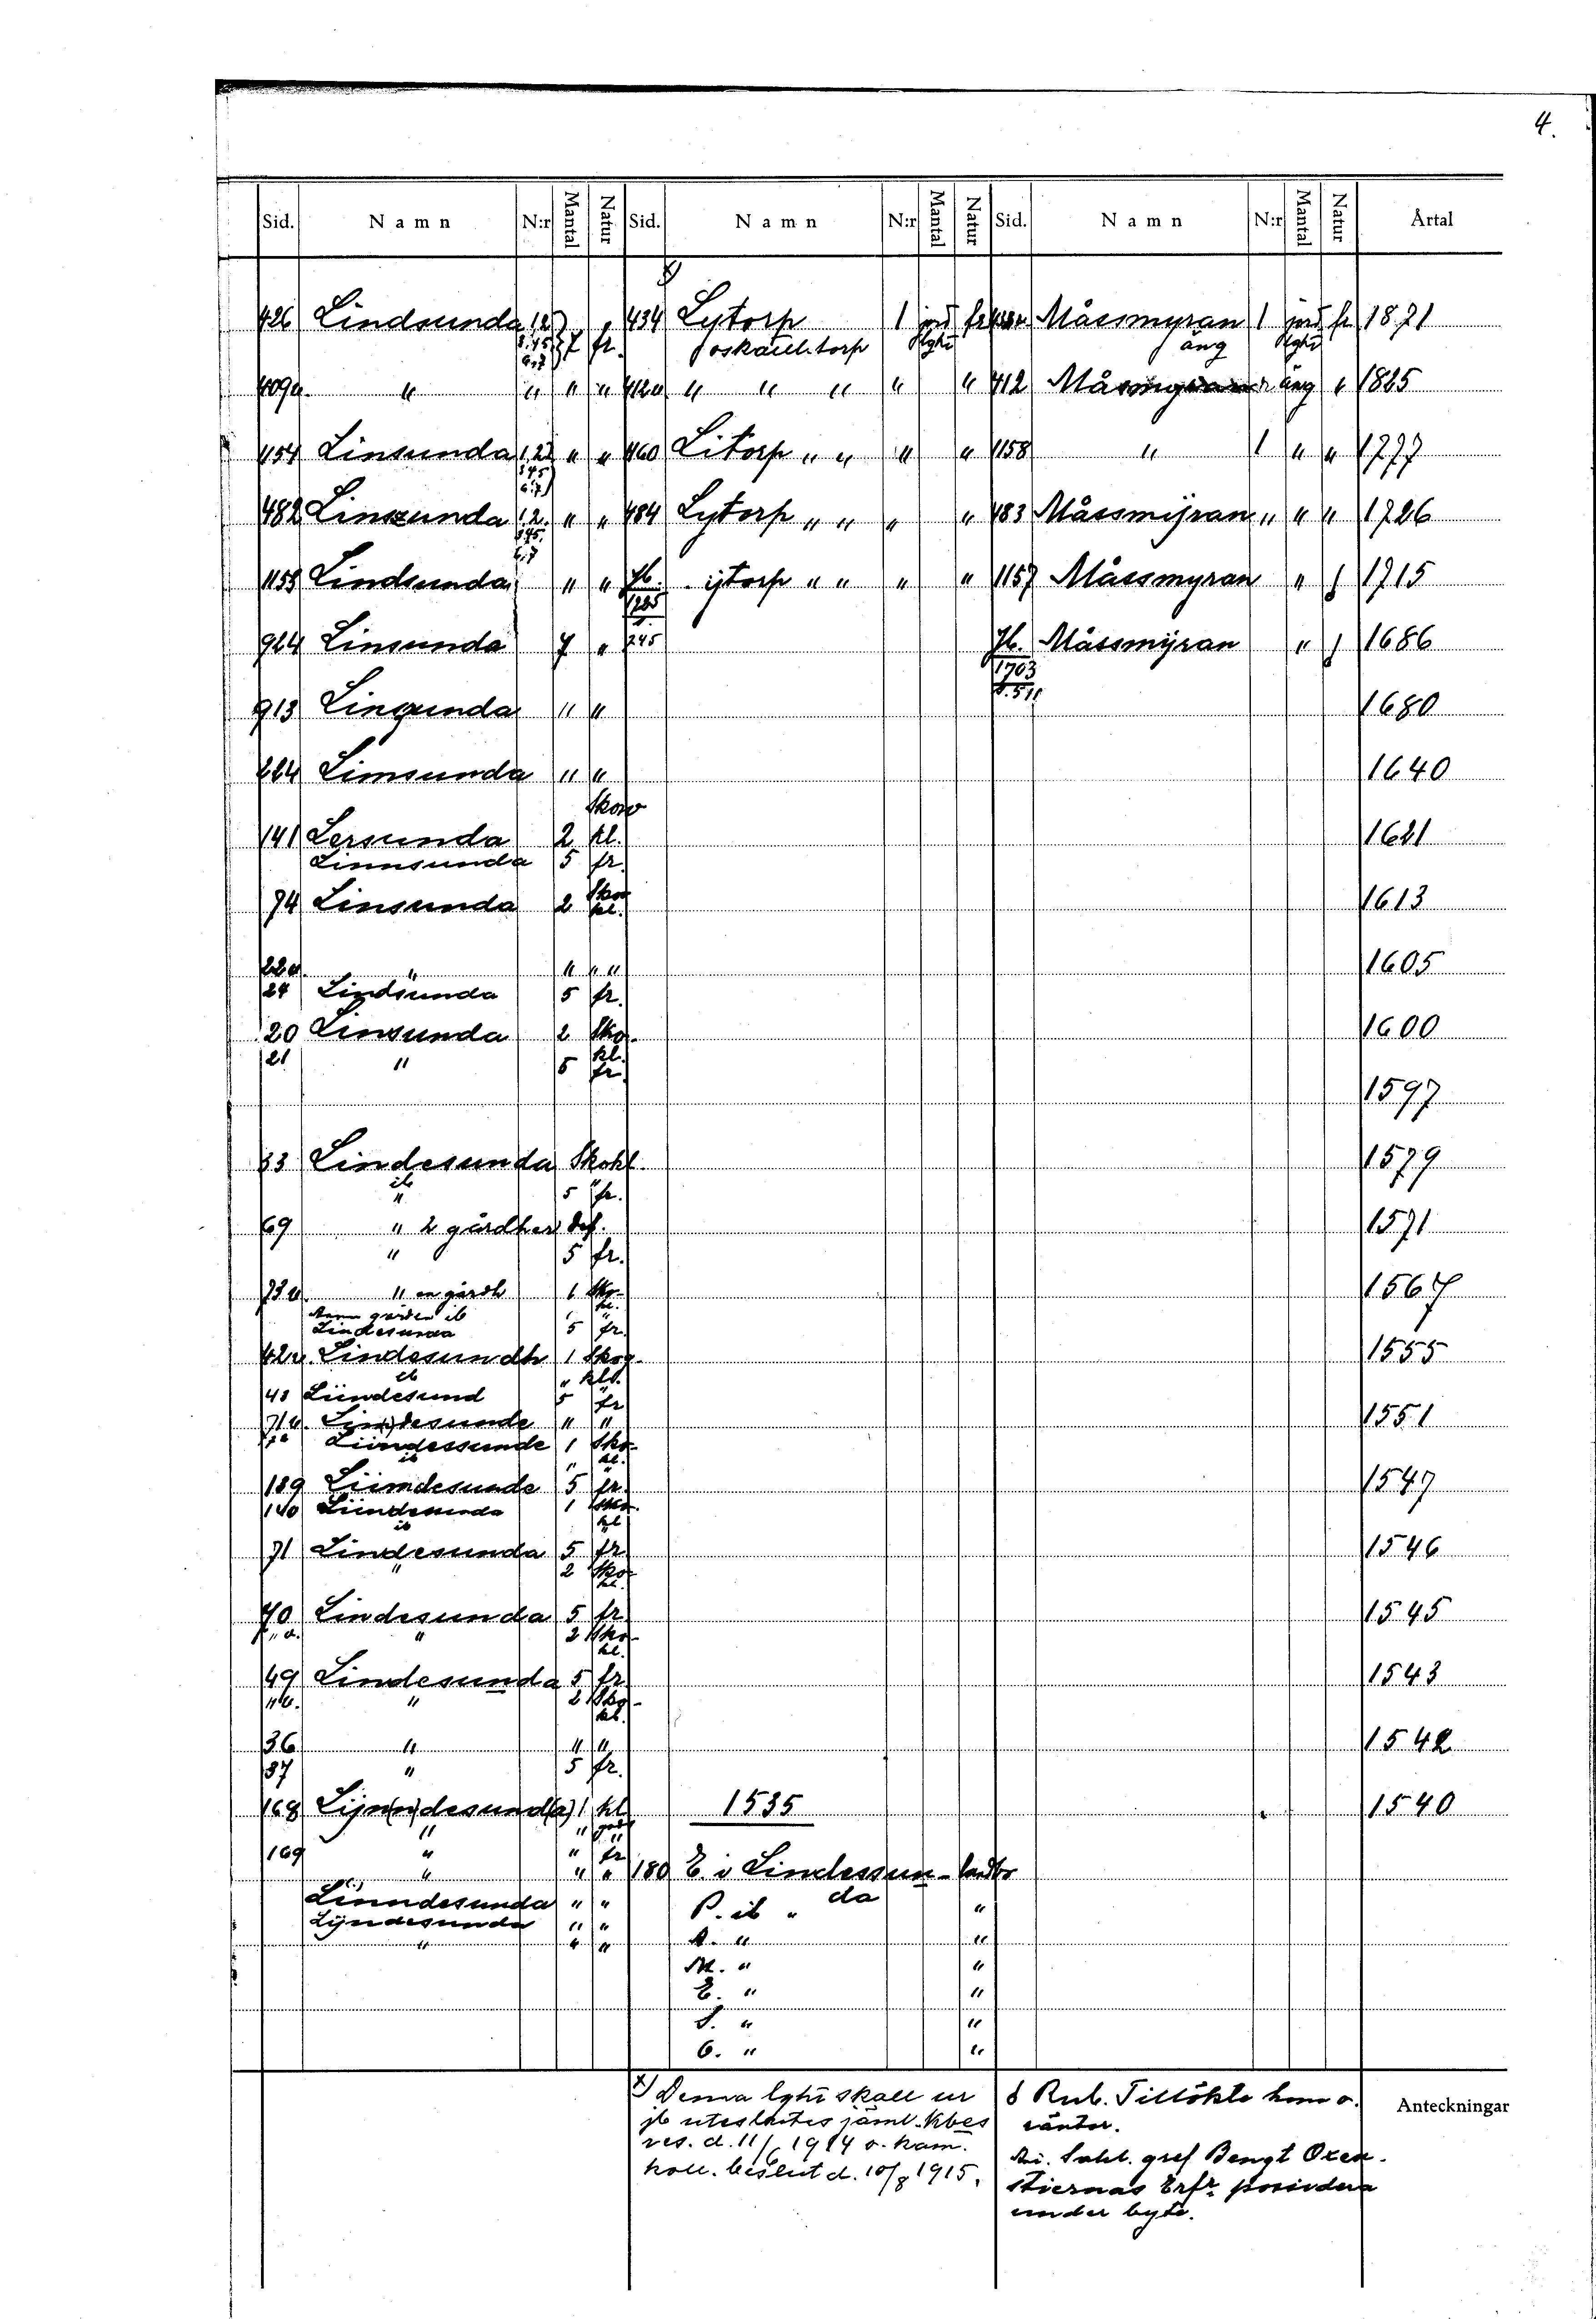 4.
Sid. Namn N:r Mantal Natur Sid. Namn N:r Mantal Natur Sid. Namn N:r Mantal Natur Årtal
426 Lindsunda 1,2, 7 fr. 434 Lytorp 1 jord fr Måssmyran 1 jord fr 1871
3,4,5 6,7 torp lght äng lght
409a " " " " 412a " " " " " 412 äng " 1825
454 Linsunda 1,2,3 " " 460 Litorp " " " " 1158 " 1 " " 1777
4,5 6,7
482 Linsunda 1,2. " " 484 Lytorp " " " " 483 Måssmÿran " " " 1726
3,4,5. 6,7
1159 Lindsunda " " Jb. ijtorp " " " " 1157 Måssmyran " f 1715
1725
924 Linsunda 7 " 245 Jb. Måssmÿran " f 1686
1703
s. 511
913 Linsunda " " 1680
264 Limsunda " " 1640
Skow
141 Lersunda 2 kl. 1621
Linnsunda 5 fr.
74 Linsunda 2 Sko kl. 1613
22a " " " " 1605
24 Lindsunda 5 fr.
20 Linsunda 2 Sko- 1600
21 " 5 kl. fr.
1597
33 Lindesunda Skokl. 1579
ib " 5 fr.
69 " 2 gårdher 1571
" 5 fr.
73a " en gårdh 1 Sko- kl. 1567
gården ib
Lindesunda 5 fr.
42v. Lindesundh 1 Skog- 1555
ib " klo.
43 Liindesund 5 fr
71a. Lin(n)desunde " " 1551
Liindessunde 1 Sko-
ib " kl.
139 Liimdesunde 5 fr. 1547
140 Liindesunda 1 Sko-
ib kl
71 Lindesunda 5 fr. 1546
" 2 Sko- kl.
70 Lindesunda 5 fr. 1545
" 2 Sko- kl.
49 Lindesunda 5 fr. 1543
" 2 Sko- kl.
36 " " " 1542
37 " 5 fr.
168 Lijn(n)desund(a) 1 kl 1535 1540
" " "
169 " " fr
" " " 180 E. i Lindessun- landbo
Linndesunda " " P. ib " da "
Lÿndesunda " "
" " " A. " "
M. " "
E. " "
J. " "
O. " "
x) Denna lght skall ur
jb uteslutes jäml. Kbes
res. d. 11/6 1914 o. kam.
koll. beslut d. 10/8 1915.
& Rub. Tillökte hem o.
räntor.
An. Sahl. gref Bengt Oxen-
stiernas Erfr possidera
under byte.
Anteckningar